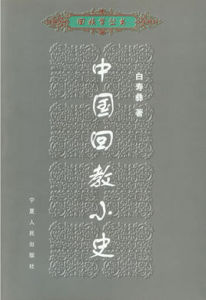 回族学丛书
白寿彝 著
中国回教小史
宁夏人民出版社